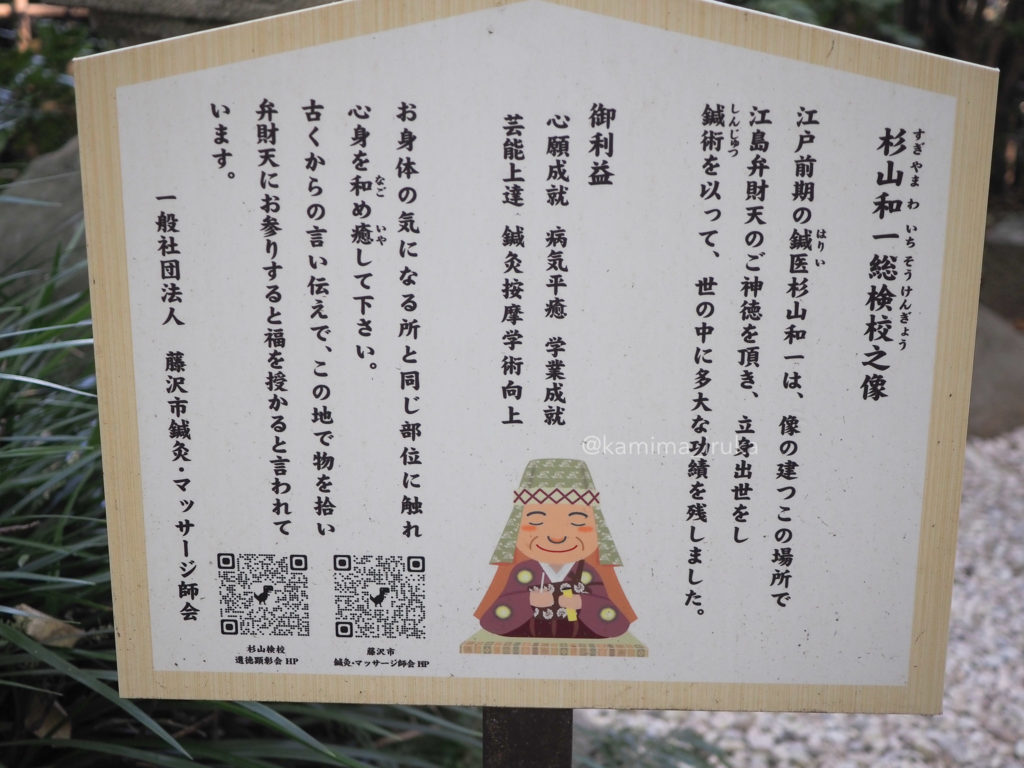 杉山和一総検校之像
すぎやまわいちそうけんぎょう
江戸前期の鍼医杉山和一は、像の建つこの場所で
はりい
江島弁財天のご神徳を頂き、立身出世をし
鍼術を以って、世の中に多大な功績を残しました。
しんじゅつ
御利益
心願成就 病気平癒 学業成就
芸能上達 鍼灸按摩学術向上
お身体の気になる所と同じ部位に触れ
心身を和め癒して下さい。
なご いや
古くからの言い伝えで、この地で物を拾い
弁財天にお参りすると福を授かると言われて
います。
一般社団法人 藤沢市鍼灸・マッサージ師会
藤沢市
鍼灸・マッサージ師会HP
杉山検校
遺徳顕彰会HP